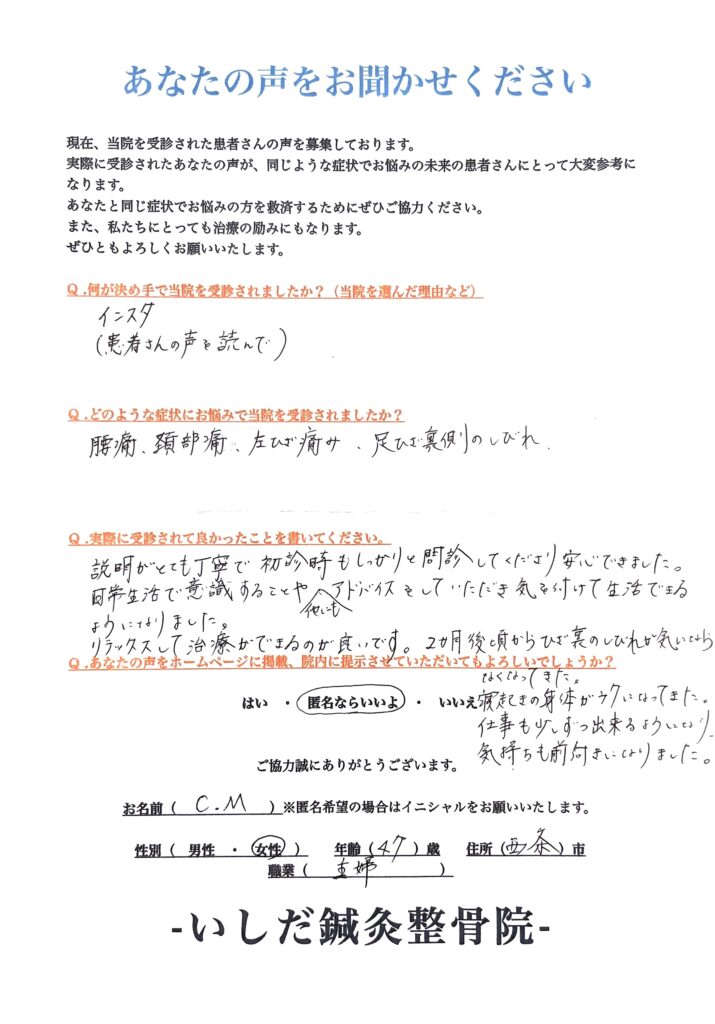 あなたの声をお聞かせください
現在、当院を受診された患者さんの声を募集しております。
実際に受診されたあなたの声が、同じような症状でお悩みの未来の患者さんにとって大変参考に
なります。
あなたと同じ症状でお悩みの方を救済するためにぜひご協力ください。
また、私たちにとっても治療の励みにもなります。
ぜひともよろしくお願いいたします。
Q.何が決め手で当院を受診されましたか？（当院を選んだ理由など）
インスタ
(患者さんの声を読んで)
Q.どのような症状にお悩みで当院を受診されましたか？
腰痛、頚部痛、左ひざ痛み、足ひざ裏側のしびれ.
Q.実際に受診されて良かったことを書いてください。
説明がとても丁寧で初診時もしっかりと問診してくださり安心できました。
日常生活で意識することや他にもアドバイスをしていただき気を付けて生活できる
ようになりました。
リラックスして治療ができるのが良いです。2カ月後頃からひざ裏のしびれが気いなら
なくなってきた。
寝起きの身体がラクになってきた。
仕事も少しずつ出来るようになり、
気持ちも前向きになりました。
Q.あなたの声をホームページに掲載、院内に提示させていただいてもよろしいでしょうか？
はい ・ 匿名ならいいよ ・ いいえ
ご協力誠にありがとうございます。
お名前（ C.M ）※匿名希望の場合はイニシャルをお願いいたします。
性別（ 男性 ・ 女性 ） 年齢（47）歳 住所（西条）市
職業（ 主婦 ）
-いしだ鍼灸整骨院-